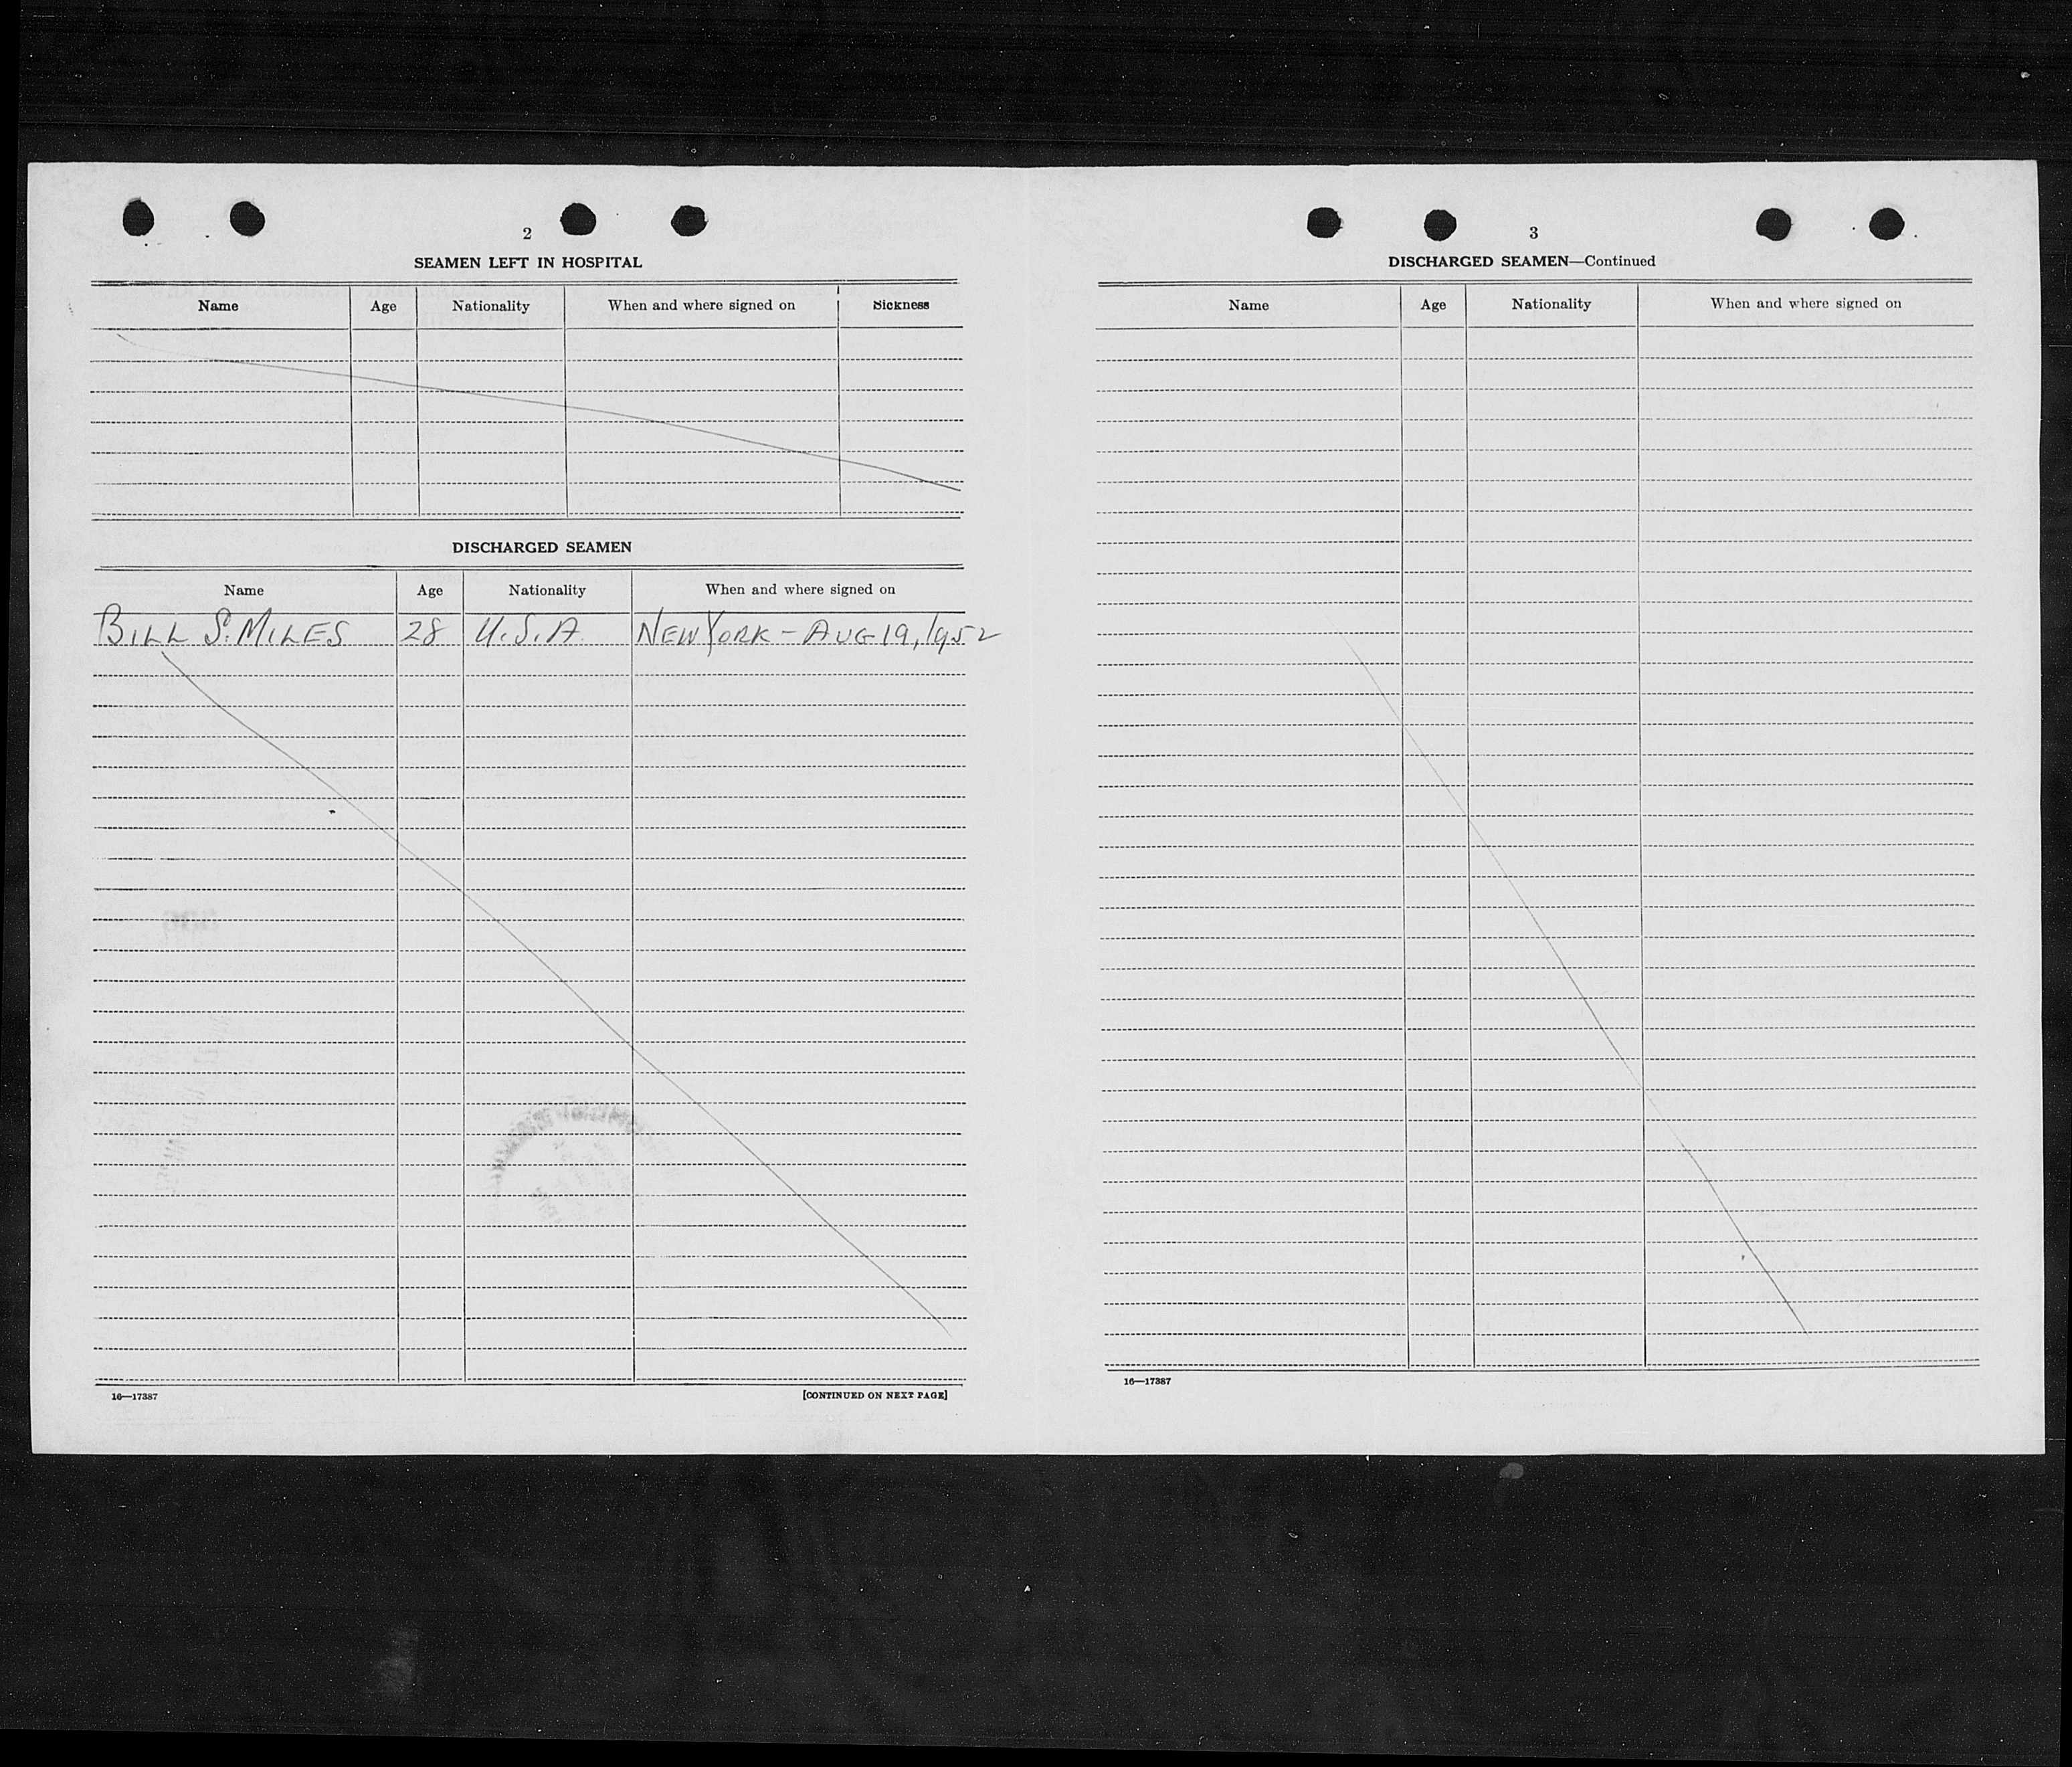 2
SEAMEN LEFT IN HOSPITAL
Name Age Nationality When and where signed on Sickness
DISCHARGED SEAMEN
Name Age Nationality When and where signed on
BILL S. MILES 28 U.S.A. NEW YORK - AUG 19, 1952
16—17387 [CONTINUED ON NEXT PAGE]
3
DISCHARGED SEAMEN—Continued
Name Age Nationality When and where signed on
16—17387